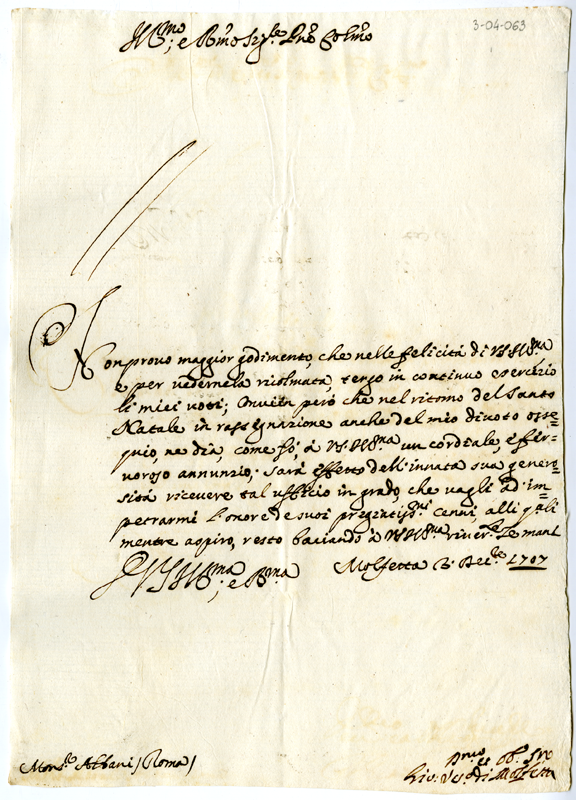 3-04-063
Ill.mo, e R.mo Sig.re P.ne Col.mo
Non provo maggior godimento, che nelle felicità di V.S.Ill.ma,
e per vedernela ricolmata, tengo in continuo esercizio
li miei voti; Invita però che nel ritorno del Santo
Natale in rassegnazione anche del mio divoto osse=
quio, ne dia, come fò, à V.S.Ill.ma un cordiale, e fer=
voroso annunzio; sarà effetto dell'innata sua genero=
sità ricevere tal ufficio in grado, che vagli ad im=
petrarmi l'onore de suoi pregiatiss.mi cenni, alli quali
mentre aspiro, resto baciando à V.S.Ill.ma river.te le mani
Di V.S.Ill.ma, e R.ma Molfetta 3 Dec.e 1707
Mons.r Albani / Roma /
Ob. Ser.
Gio: Ves.o di Molfetta